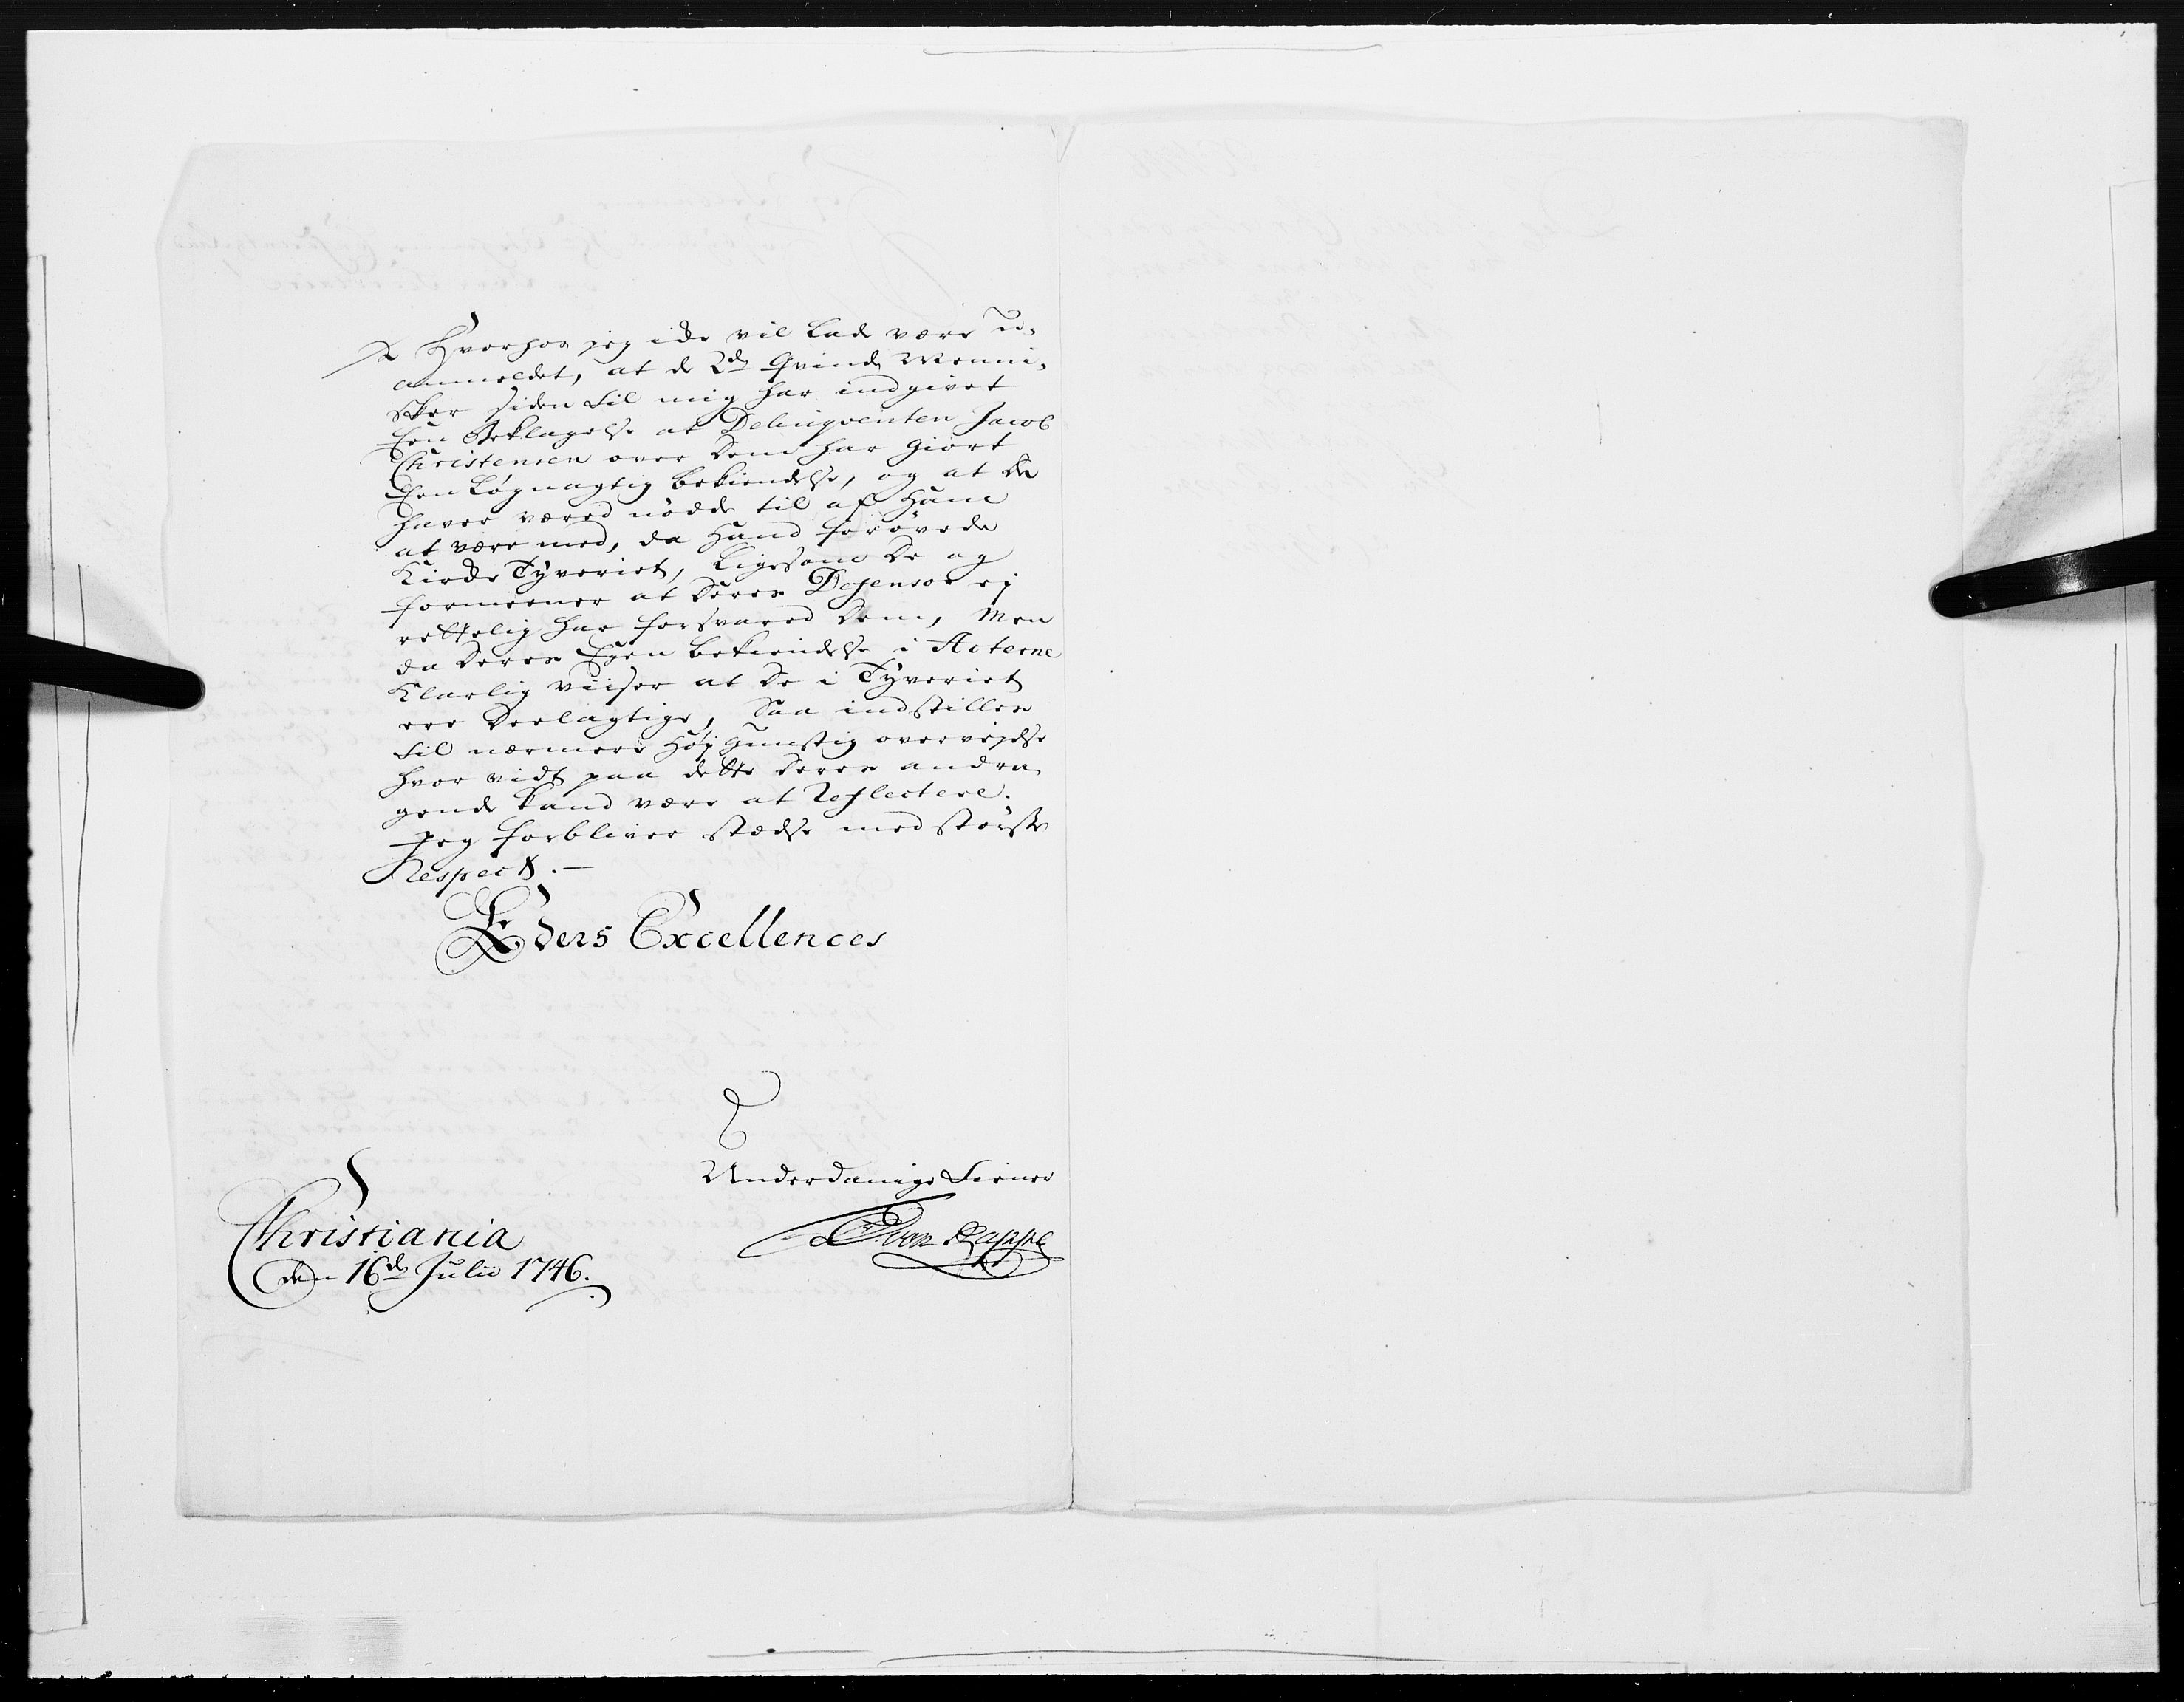 Hvorhos jeg icke vil lade være u-
anmeldet, at de 2de Qvinde Menni-
sker siden til mig har indgivet
Een Beklagelse at Delinqventen Jacob
Christensen over dem har giort
Een løgnagtig bekiendelse, og at de
haver væred nødde til af ham
at være med, da Hand forøvede
Kircke Tyveriet, ligesom de og
formeener at deres Defensor ej
rettelig har forsvared dem, Men
da deres Egen bekiendelse i Acterne
Klarlig viiser at de i Tyveriet
ere deelagtige, Saa indstilles
til nærmere Høj gunstig overvejelse
hvor vidt paa dette deres andra-
gende kand være at Reflectere.
Jeg forbliver stædse med største
Respect.
Eders Excellences
Underdanige Tiener
Christiania
den 16de Julii 1746.
von Rappe